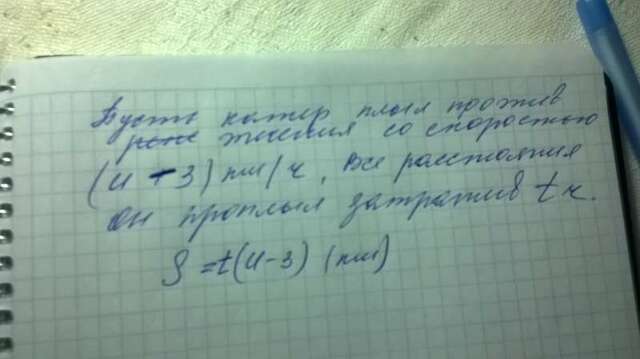 Пусть катер плыл против
реке течения со скоростью
(u-3) км/ч, все расстояния
он проплыл затратив t ч.
S = t(u-3) (км)